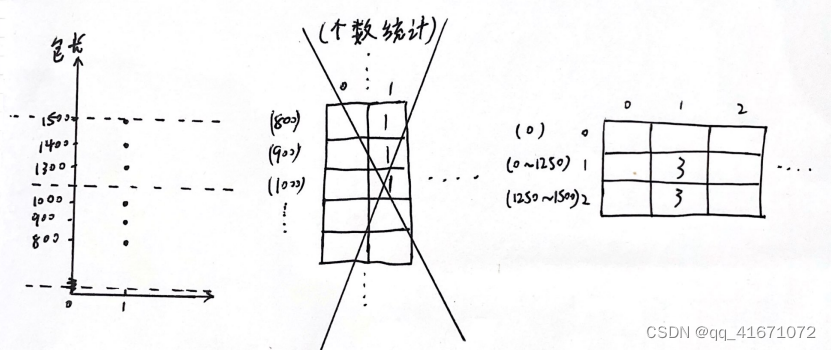 包长
1500
1400
1300
1000
900
800
0
1
(个数统计)
0 1
(800) 1
(900) 1
(1000) 1
0 1 2
(0) 0
(0~1250) 1 3
(1250~1500) 2 3
CSDN @qq_41671072